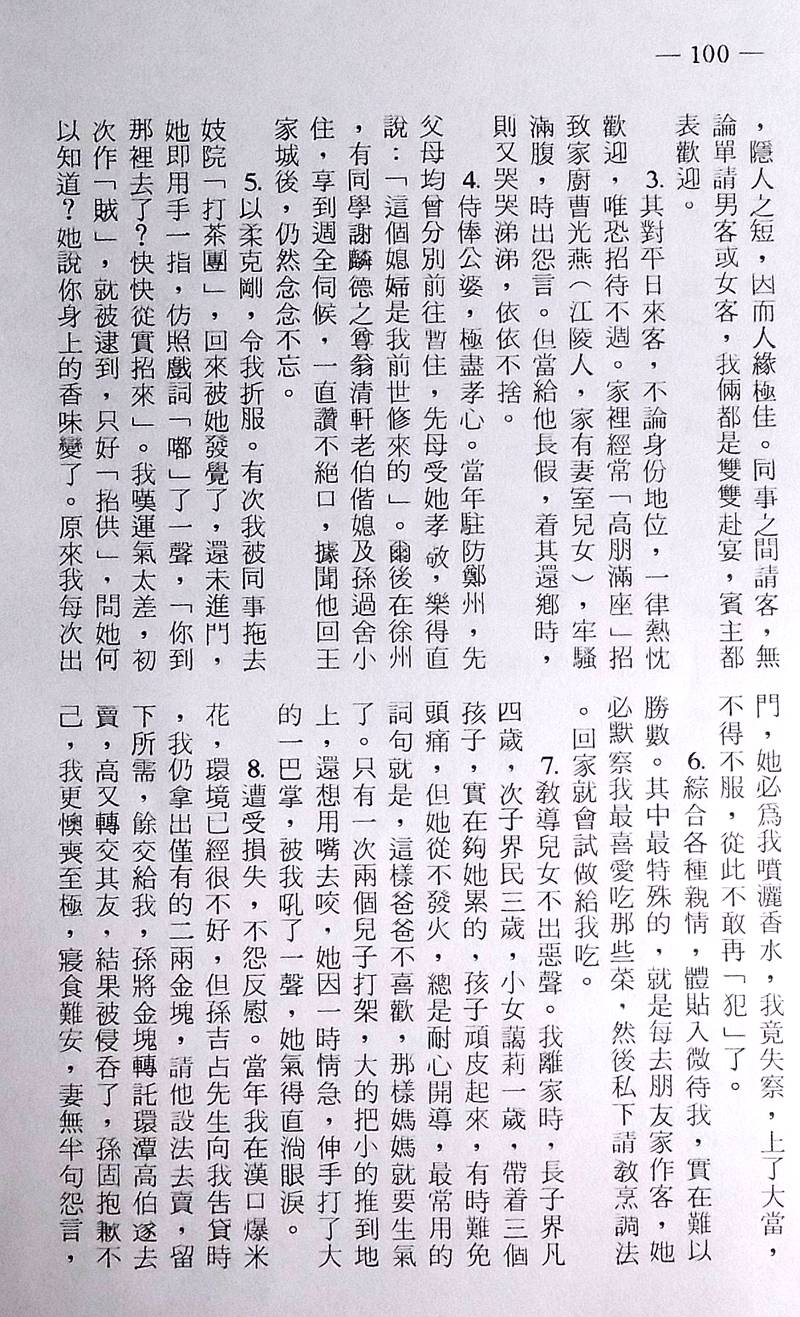 — 100 —
，隱人之短，因而人緣極佳。同事之間請客，無
論單請男客或女客，我倆都是雙雙赴宴，賓主都
表歡迎。
3.其對平日來客，不論身份地位，一律熱忱
歡迎，唯恐招待不週。家裡經常「高朋滿座」招
致家廚曹光燕（江陵人，家有妻室兒女），牢騷
滿腹，時出怨言。但當給他長假，着其還鄉時，
則又哭哭涕涕，依依不捨。
4.侍俸公婆，極盡孝心。當年駐防鄭州，先
父母均曾分別前往暫住，先母受她孝敬，樂得直
說：「這個媳婦是我前世修來的」。爾後在徐州
，有同學謝麟德之尊翁清軒老伯偕媳及孫過舍小
住，享到週全伺候，一直讚不絕口，據聞他回王
家城後，仍然念念不忘。
5.以柔克剛，令我折服。有次我被同事拖去
妓院「打茶團」，回來被她發覺了，還未進門，
她即用手一指，仿照戲詞「嘟」了一聲，「你到
那裡去了？快快從實招來」。我嘆運氣太差，初
次作「賊」，就被逮到，只好「招供」，問她何
以知道？她說你身上的香味變了。原來我每次出
門，她必為我噴灑香水，我竟失察，上了大當，
不得不服，從此不敢再「犯」了。
6.綜合各種親情，體貼入微待我，實在難以
勝數。其中最特殊的，就是每去朋友家作客，她
必默察我最喜愛吃那些菜，然後私下請教烹調法
。回家就會試做給我吃。
7.教導兒女不出惡聲。我離家時，長子界凡
四歲，次子界民三歲，小女藹莉一歲，帶着三個
孩子，實在夠她累的，孩子頑皮起來，有時難免
頭痛，但她從不發火，總是耐心開導，最常用的
詞句就是，這樣爸爸不喜歡，那樣媽媽就要生氣
了。只有一次兩個兒子打架，大的把小的推到地
上，還想用嘴去咬，她因一時情急，伸手打了大
的一巴掌，被我吼了一聲，她氣得直淌眼淚。
8.遭受損失，不怨反慰。當年我在漢口爆米
花，環境已經很不好，但孫吉占先生向我告貸時
，我仍拿出僅有的二兩金塊，請他設法去賣，留
下所需，餘交給我，孫將金塊轉託環潭高伯遂去
賣，高又轉交其友，結果被侵吞了，孫固抱歉不
己，我更懊喪至極，寢食難安，妻無半句怨言，